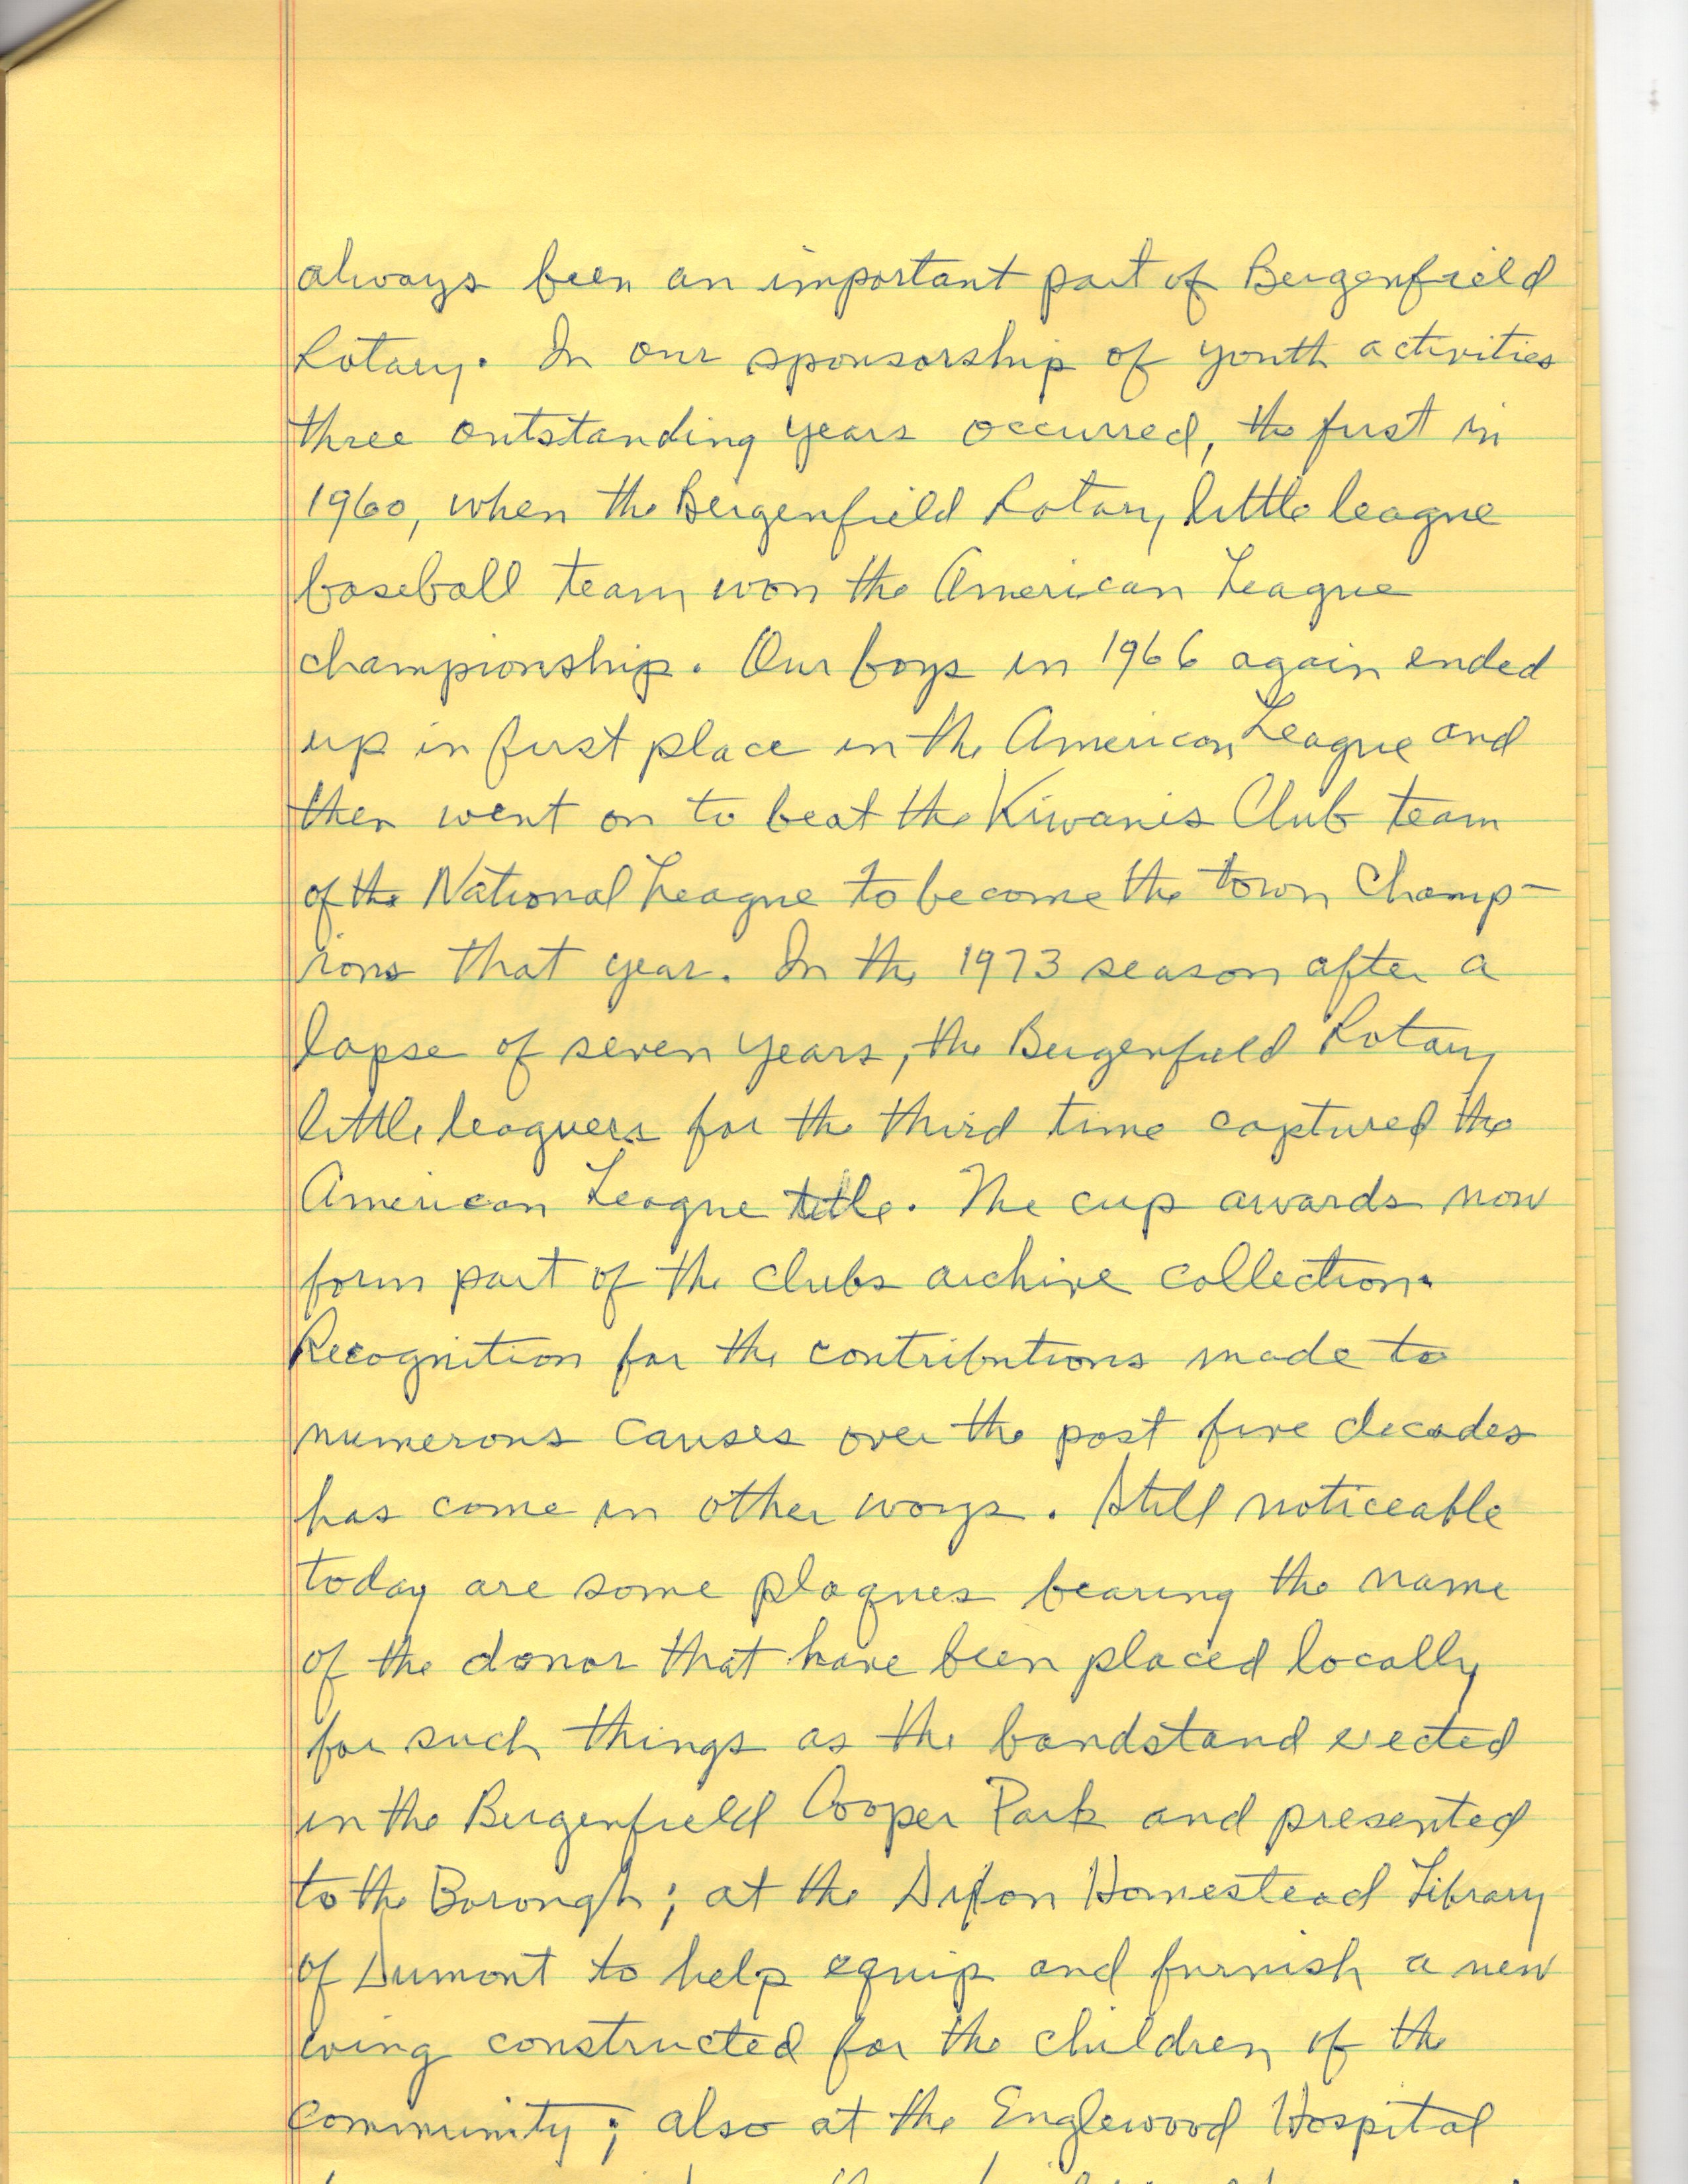 always been an important part of Bergenfield
Rotary. In our sponsorship of youth activities
three outstanding years occurred, the first in
1960, when the Bergenfield Rotary little league
baseball team won the American League
championship. Our boys in 1966 again ended
up in first place in the American League and
then went on to beat the Kiwanis Club team
of the National League to become the town Champ-
ions that year. In the 1973 season after a
lapse of seven years, the Bergenfield Rotary
little leaguers for the third time captured the
American League title. The cup awards now
form part of the clubs archive collection.
Recognition for the contributions made to
numerous causes over the past five decades
has come in other ways. Still noticeable
today are some plaques bearing the name
of the donor that have been placed locally
for such things as the bandstand erected
in the Bergenfield Cooper Park and presented
to the Borough; at the Dixon Homestead Library
of Dumont to help equip and furnish a new
wing constructed for the children of the
community; also at the Englewood Hospital